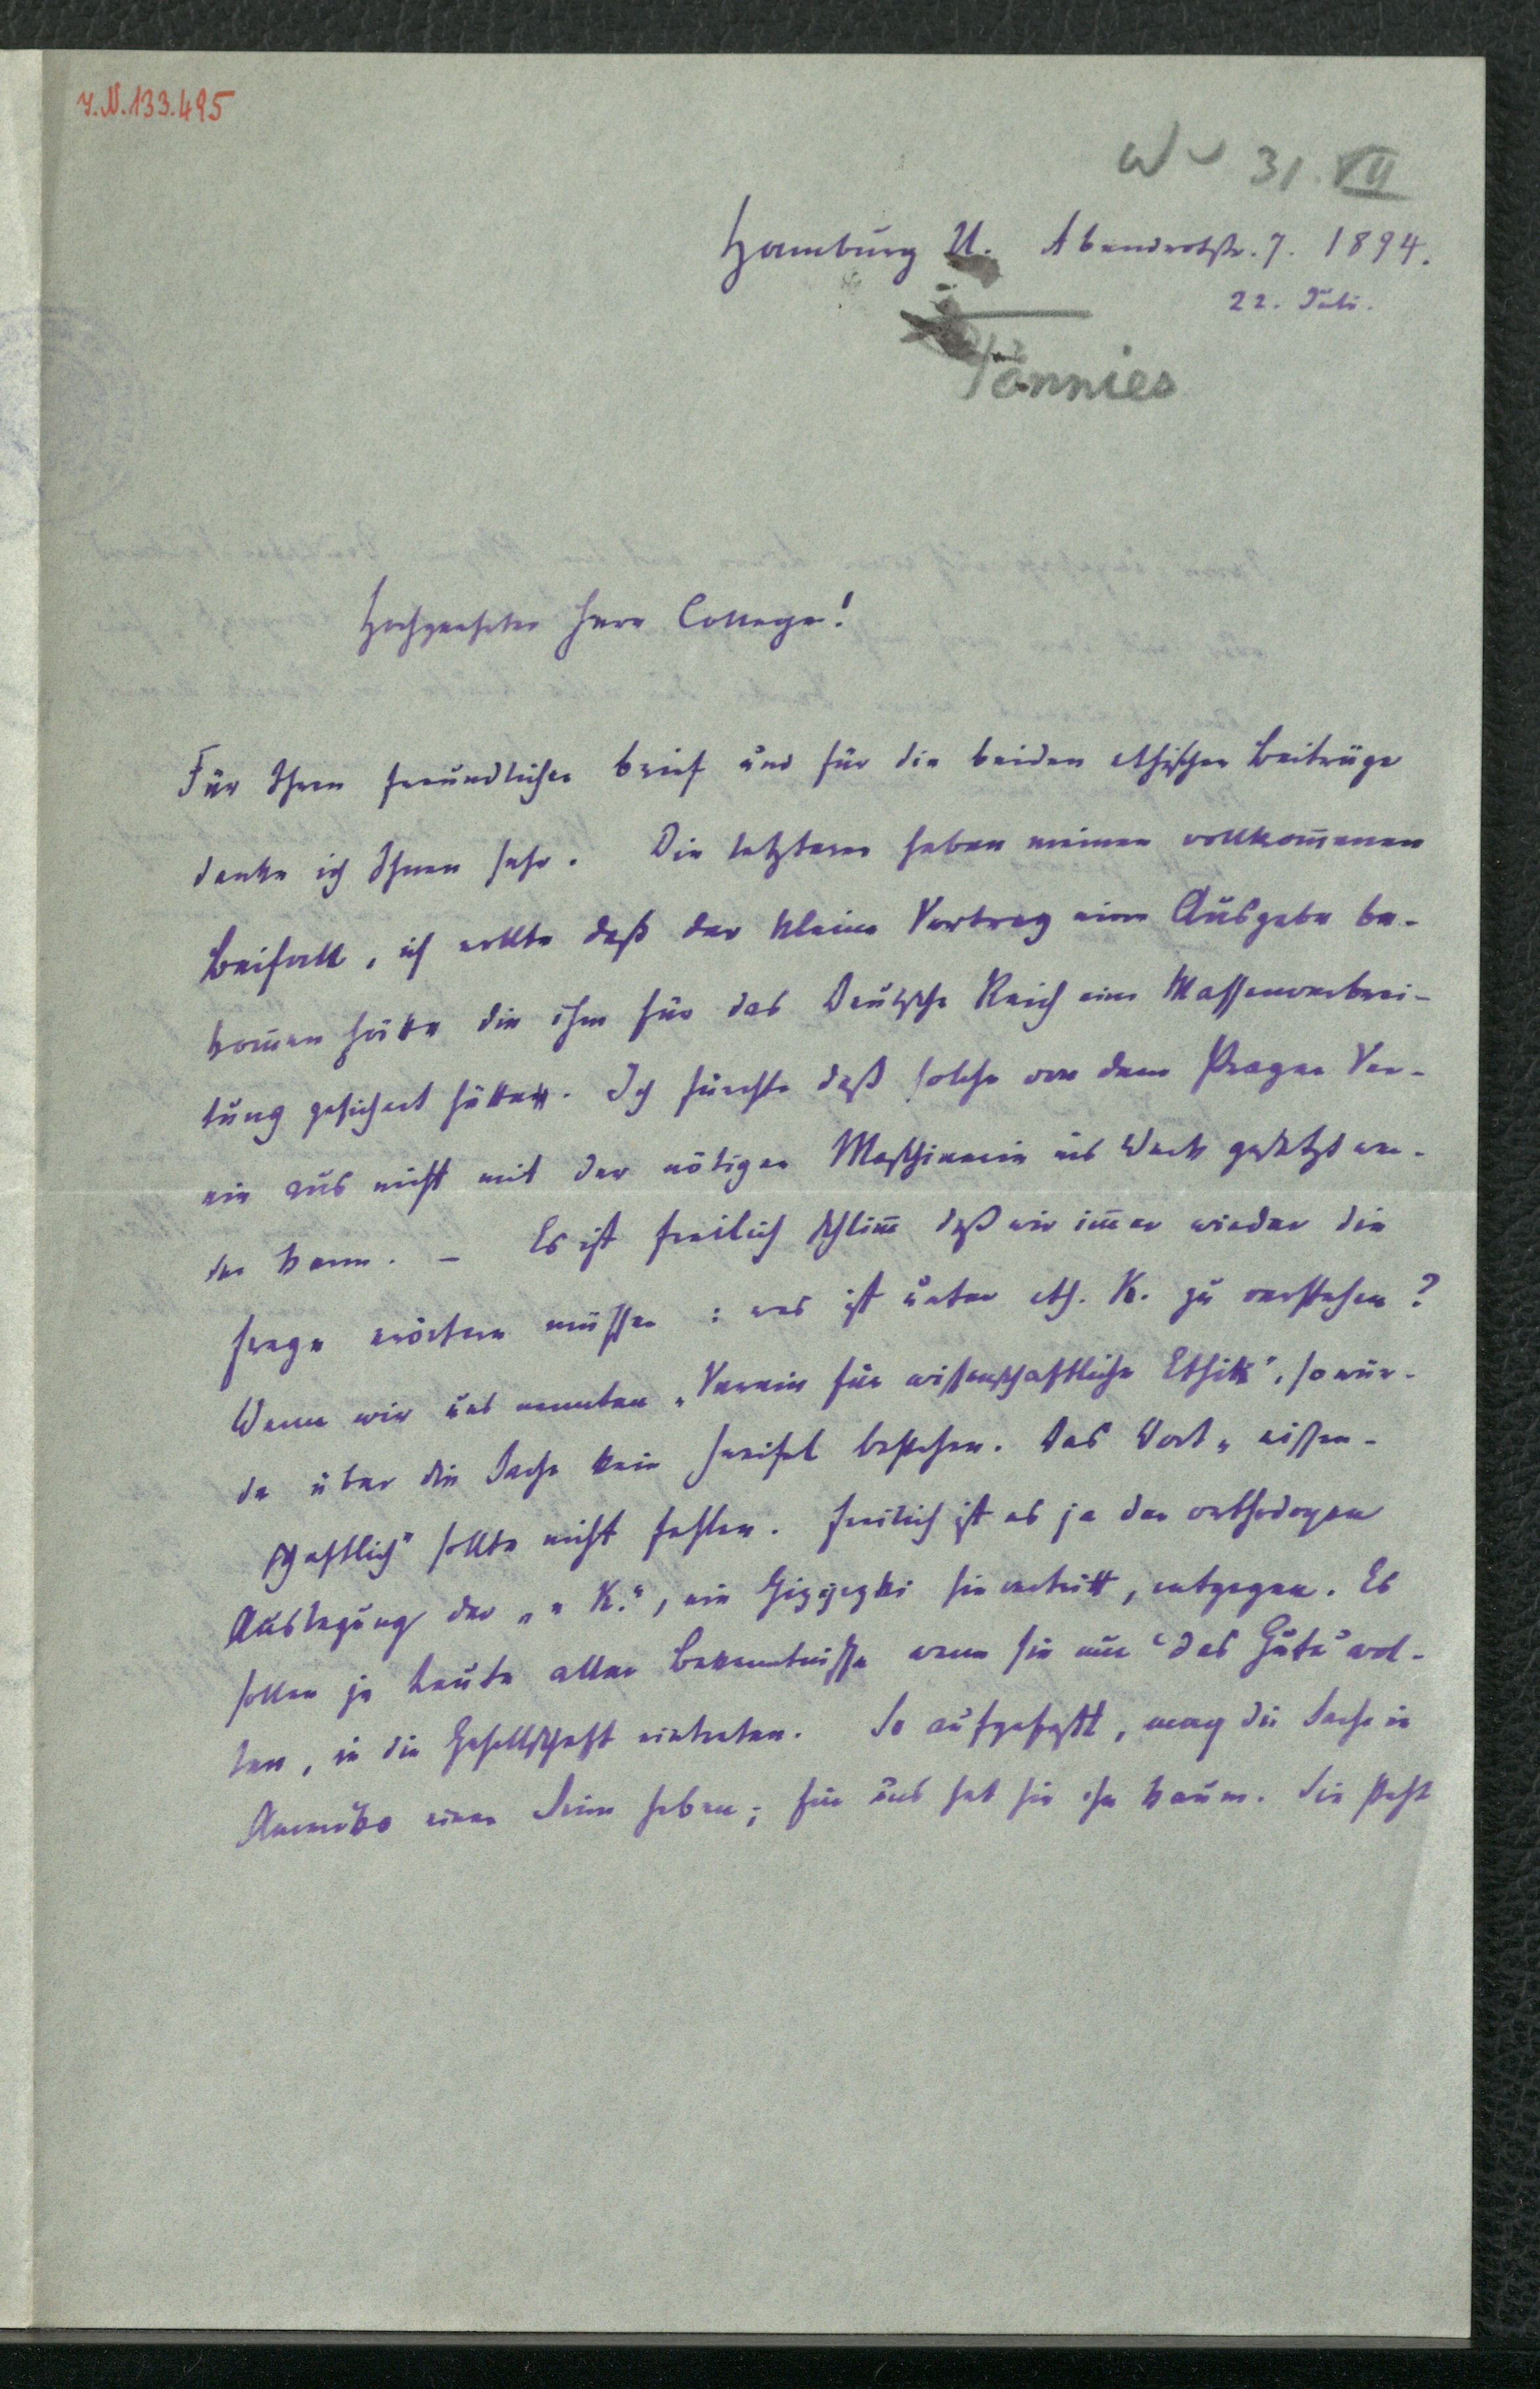 I.N. 133.495
31. VII
Hamburg U. Abendrothstr. 7. 1894.
22. Juli.
Tönnies
Hochgeehrter Herr College!
Für Ihren freundlichen Brief und für die beiden ethischen Beiträge
danke ich Ihnen sehr. Die letzteren haben meinen vollkom̅enen
Beifall, ich wollte daß der kleine Vortrag eine Ausgabe be-
kom̅en hätte die ihm für das Deutsche Reich eine Massenverbrei-
tung gesichert hätte. Ich fürchte daß solche von dem Prager Ver-
ein aus nicht mit der nötigen Maschinerie ins Werk gesetzt wer-
den kann. – Es ist freilich schlim̅ daß wir im̅er wieder die
Frage erörtern müssen: was ist unter eth. K. zu verstehen?
Wenn wir uns nennten „Verein für wissenschaftliche Ethik", so wür-
de über die Sache kein Zweifel bestehen. Das Wort „wissen-
schaftlich" sollte nicht fehlen. Freilich ist es ja der orthodoxen
Auslegung der „e K.", wie Gizycki sie vertritt, entgegen. Es
sollen ja Leute aller Bekenntnisse wenn sie nur "das Gute" wol-
len, in die Gesellschaft eintreten. So aufgefaßt, mag die Sache in
Amerika einen Sinn haben; für uns hat sie ihn kaum. Sie steht